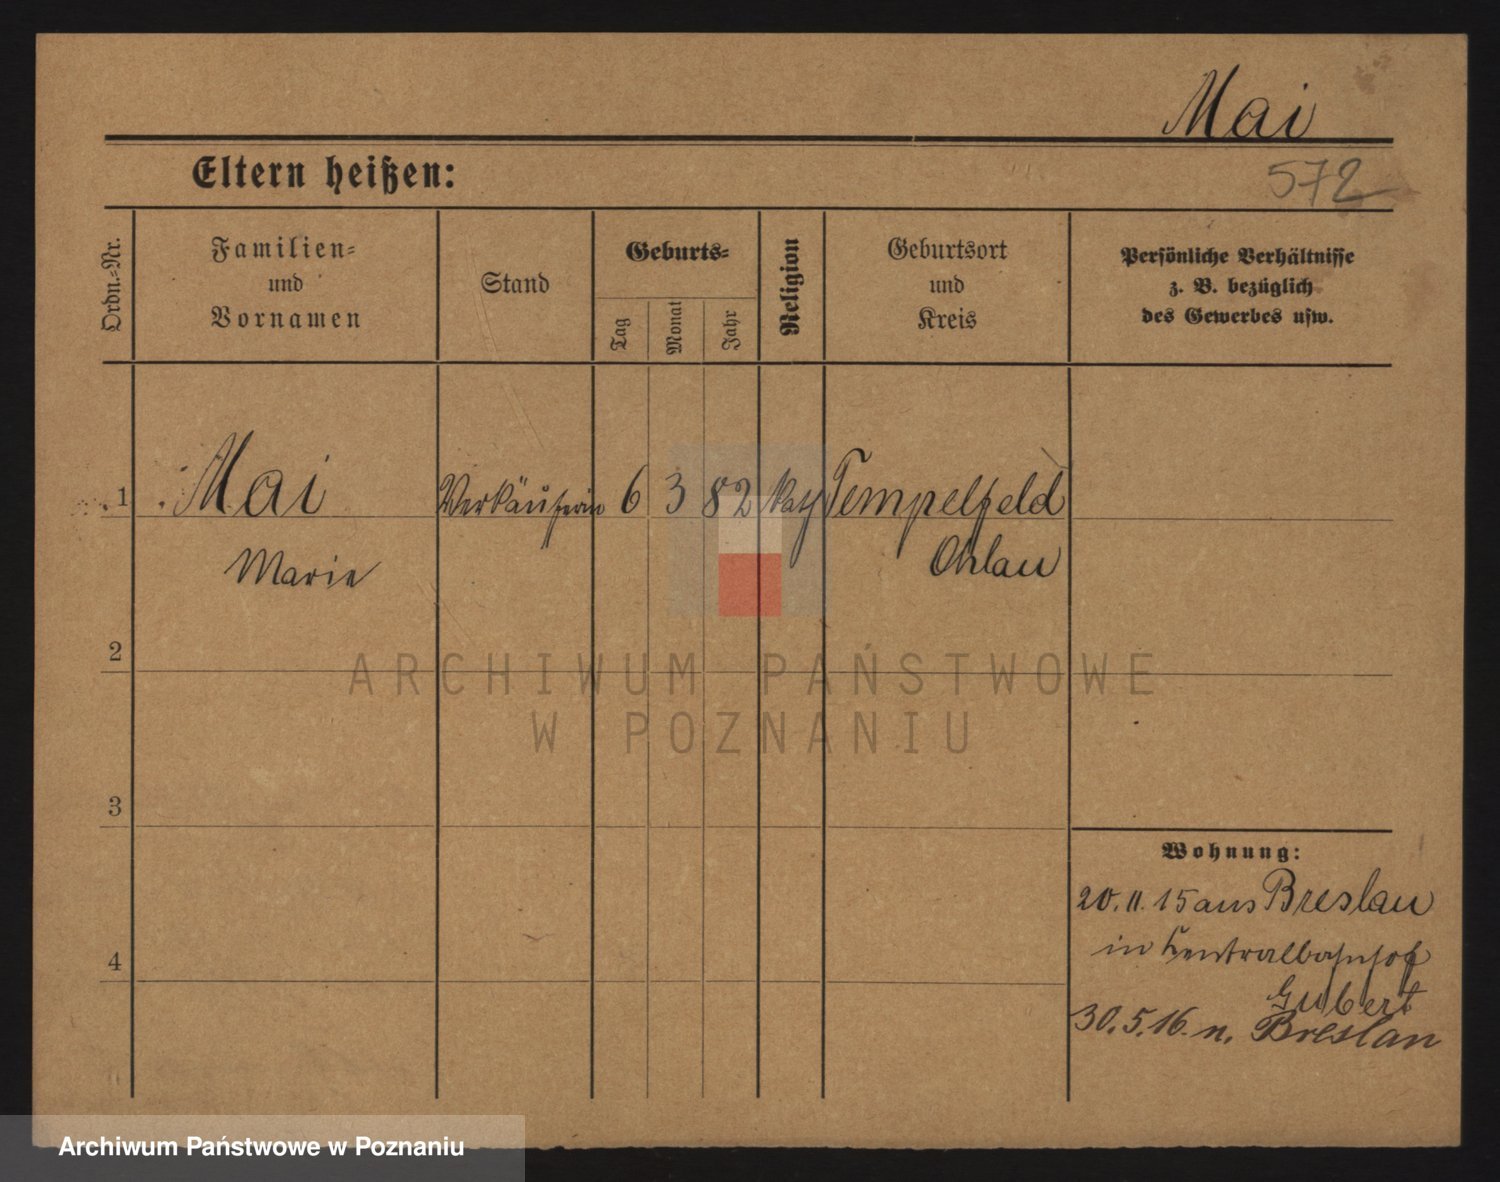 Mai
Eltern heißen:
572
Ordn.-Nr.
Familien-
und
Vornamen
Stand
Geburts-
Tag
Monat
Jahr
Religion
Geburtsort
und
Kreis
Persönliche Verhältnisse
z. B. bezüglich
des Gewerbes usw.
1 Mai Verkäuferin 6 3 82 kath Tempelfeld
Marie Ohlau
2
ARCHIWUM PAŃSTWOWE
W POZNANIU
3
Wohnung:
20. 11. 15 aus Breslau
in Centralbahnhof
4
Gubert
30. 5. 16. n. Breslau
Archiwum Państwowe w Poznaniu